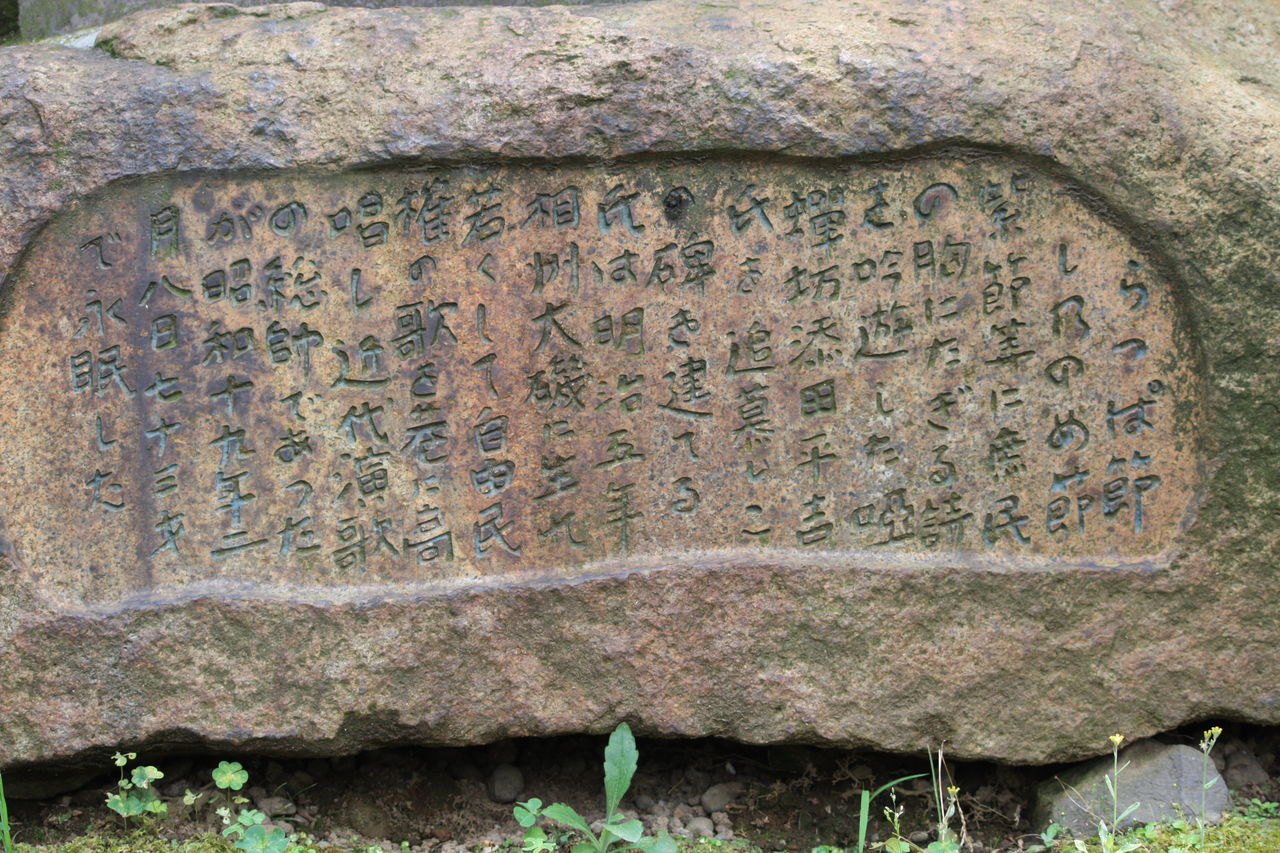 らっぱ節
しのゝめ節
紫節等に庶民
の胸にたぎる詩
を吟遊した唖
蝉坊添田平吉
氏を追慕しこ
の碑を建てる
氏は明治五年
相州大磯に生れ
若くして自由民
権の歌を巷に高
唱し近代演歌
の総帥であった
が昭和十九年二
月八日七十三才
で永眠した